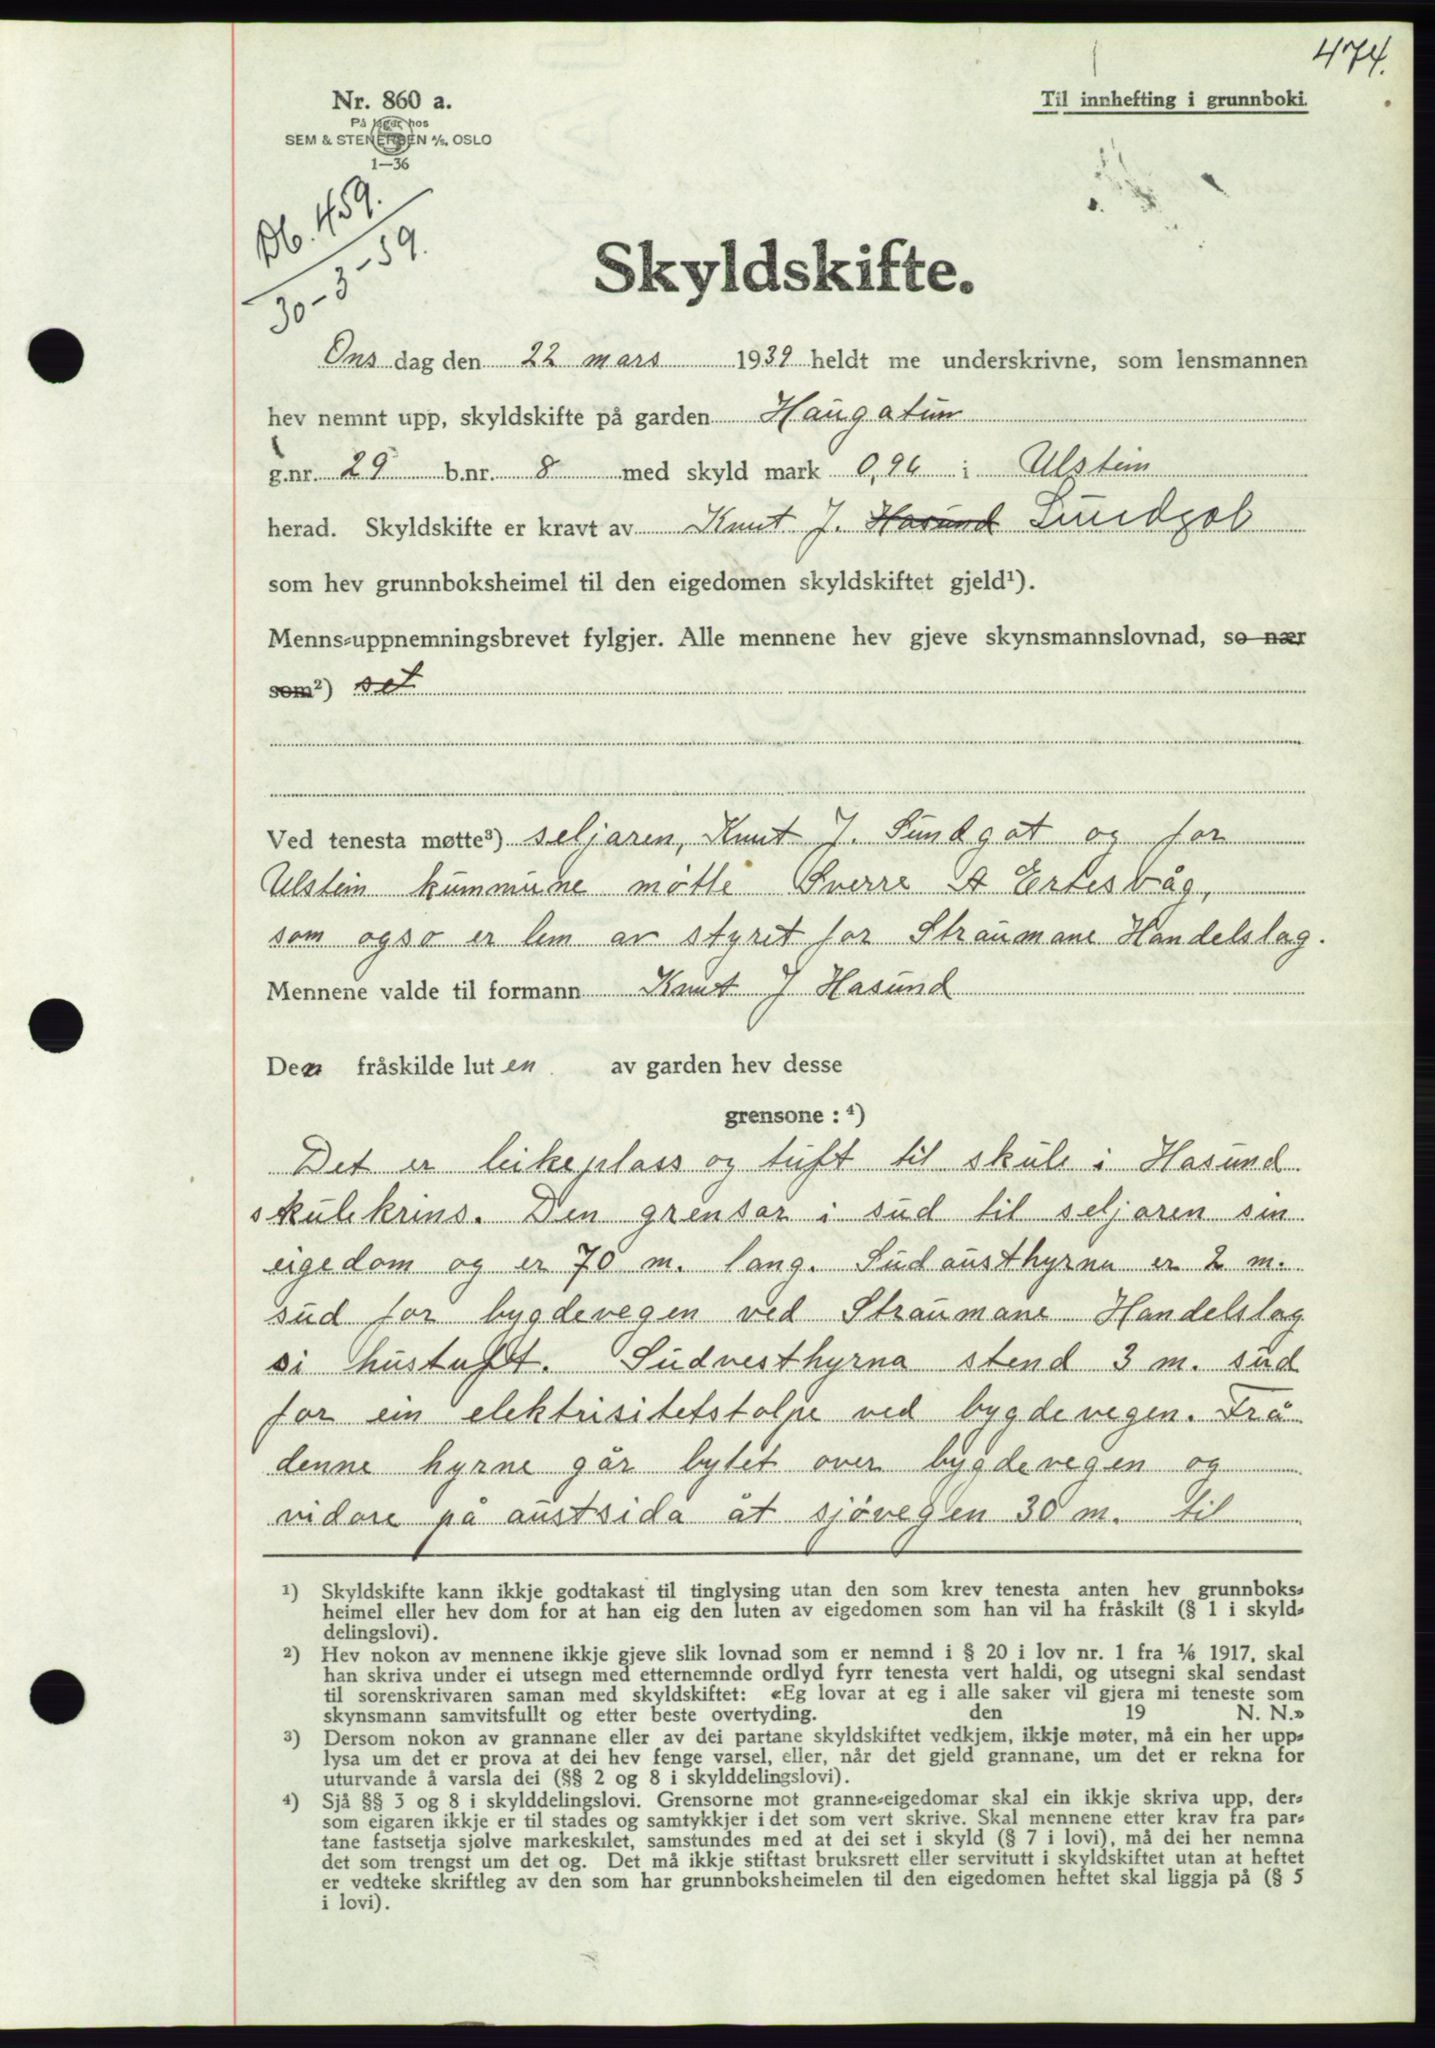 474.
Nr. 860 a.
På lager hos
SEM & STENERSEN A/S, OSLO
1—36
Til innhefting i grunnboki.
Db. 459.
30-3-39.
Skyldskifte.
Ons dag den 22 mars 1939 heldt me underskrivne, som lensmannen
hev nemnt upp, skyldskifte på garden Haugatun
g.nr. 29 b.nr. 8 med skyld mark 0,96 i Ulstein
herad. Skyldskifte er kravt av Knut J. Hasund Sundgot
som hev grunnboksheimel til den eigedomen skyldskiftet gjeld¹).
Menns-uppnemningsbrevet fylgjer. Alle mennene hev gjeve skynsmannslovnad, so nær
som²)
Ved tenesta møtte³) seljaren, Knut J. Sundgot og for
Ulstein kummune møtte Sverre A Ertesvåg,
som også er lem av styret for Straumane Handelslag.
Mennene valde til formann Knut J Hasund
Den fråskilde luten av garden hev desse
grensone : ⁴)
Det er leikeplass og tuft til skule i Hasund
skulekrins. Den grensar i sud til seljaren sin
eigedom og er 70 m. lang. Sudausthyrna er 2 m.
sud for bygdevegen ved Straumane Handelslag
si hustuft. Sudvesthyrna stend 3 m. sud
for ein elektrisitetstolpe ved bygdevegen. Frå
denne hyrne går bytet over bygdevegen og
vidare på austsida åt sjövegen 30 m. til
¹) Skyldskifte kann ikkje godtakast til tinglysing utan den som krev tenesta anten hev grunnboks-
heimel eller hev dom for at han eig den luten av eigedomen som han vil ha fråskilt (§ 1 i skyld-
delingslovi).
²) Hev nokon av mennene ikkje gjeve slik lovnad som er nemnd i § 20 i lov nr. 1 fra 1/6 1917, skal
han skriva under ei utsegn med etternemnde ordlyd fyrr tenesta vert haldi, og utsegni skal sendast
til sorenskrivaren saman med skyldskiftet: «Eg lovar at eg i alle saker vil gjera mi teneste som
skynsmann samvitsfullt og etter beste overtyding. den 19 N. N.»
³) Dersom nokon av grannane eller av dei partane skyldskiftet vedkjem, ikkje møter, må ein her upp-
lysa um det er prova at dei hev fenge varsel, eller, når det gjeld grannane, um det er rekna for
uturvande å varsla dei (§§ 2 og 8 i skylddelingslovi).
⁴) Sjå §§ 3 og 8 i skylddelingslovi. Grensorne mot granne-eigedomar skal ein ikkje skriva upp, der-
som eigaren ikkje er til stades og samtykkjer i det som vert skrive. Skal mennene etter krav fra par-
tane fastsetja sjølve markeskilet, samstundes med at dei set i skyld (§ 7 i lovi), må dei her nemna
det som trengst um det og. Det må ikkje stiftast bruksrett eller servitutt i skyldskiftet utan at heftet
er vedteke skriftleg av den som har grunnboksheimelen til den eigedomen heftet skal liggja på (§ 5
i lovi).